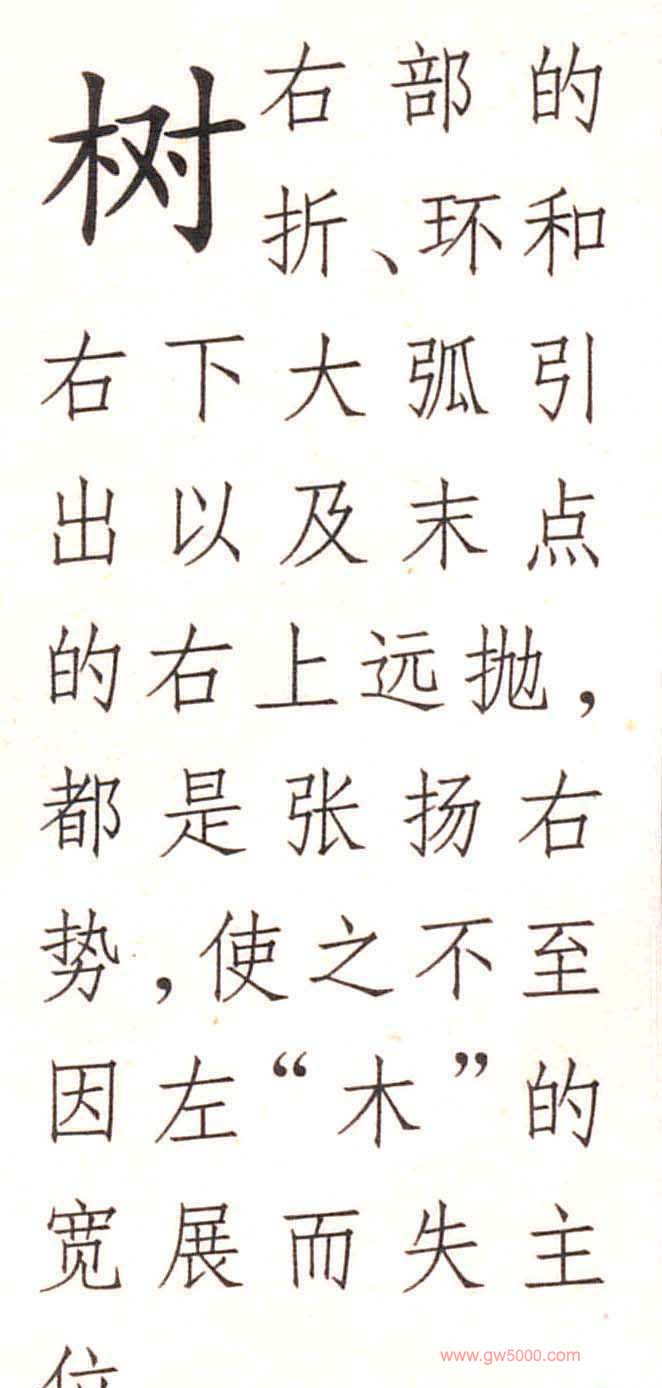 树
右部的
折、环和
右下大弧引
出以及末点
的右上远抛，
都是张扬右
势，使之不至
因左“木”的
宽展而失主
位
www.gw5000.com